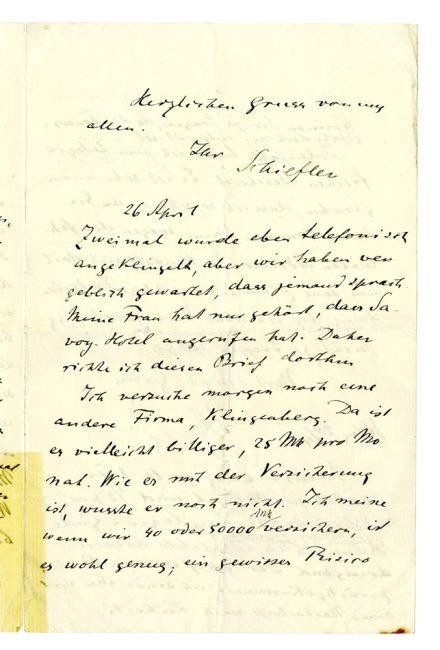 Herzlichen Gruss von uns
allen.
Ihr
Schiefler
26 April
Zweimal wurde eben telefonisch
angeklingelt, aber wir haben ver
geblich gewartet, dass jemand sprach.
Meine Frau hat nur gehört, dass Sa-
voy-Hotel angerufen hat. Daher
richte ich diesen Brief dorthin
Ich versuche morgen noch eine
andere Firma, Klingenberg. Da ist
es vielleicht billiger, 25 Mk pro Mo
nat. Wie es mit der Versicherung
ist, wusste er noch nicht. Ich meine
wenn wir 40 oder 50000 Mk versichern, ist
es wohl genug; ein gewisses Risico